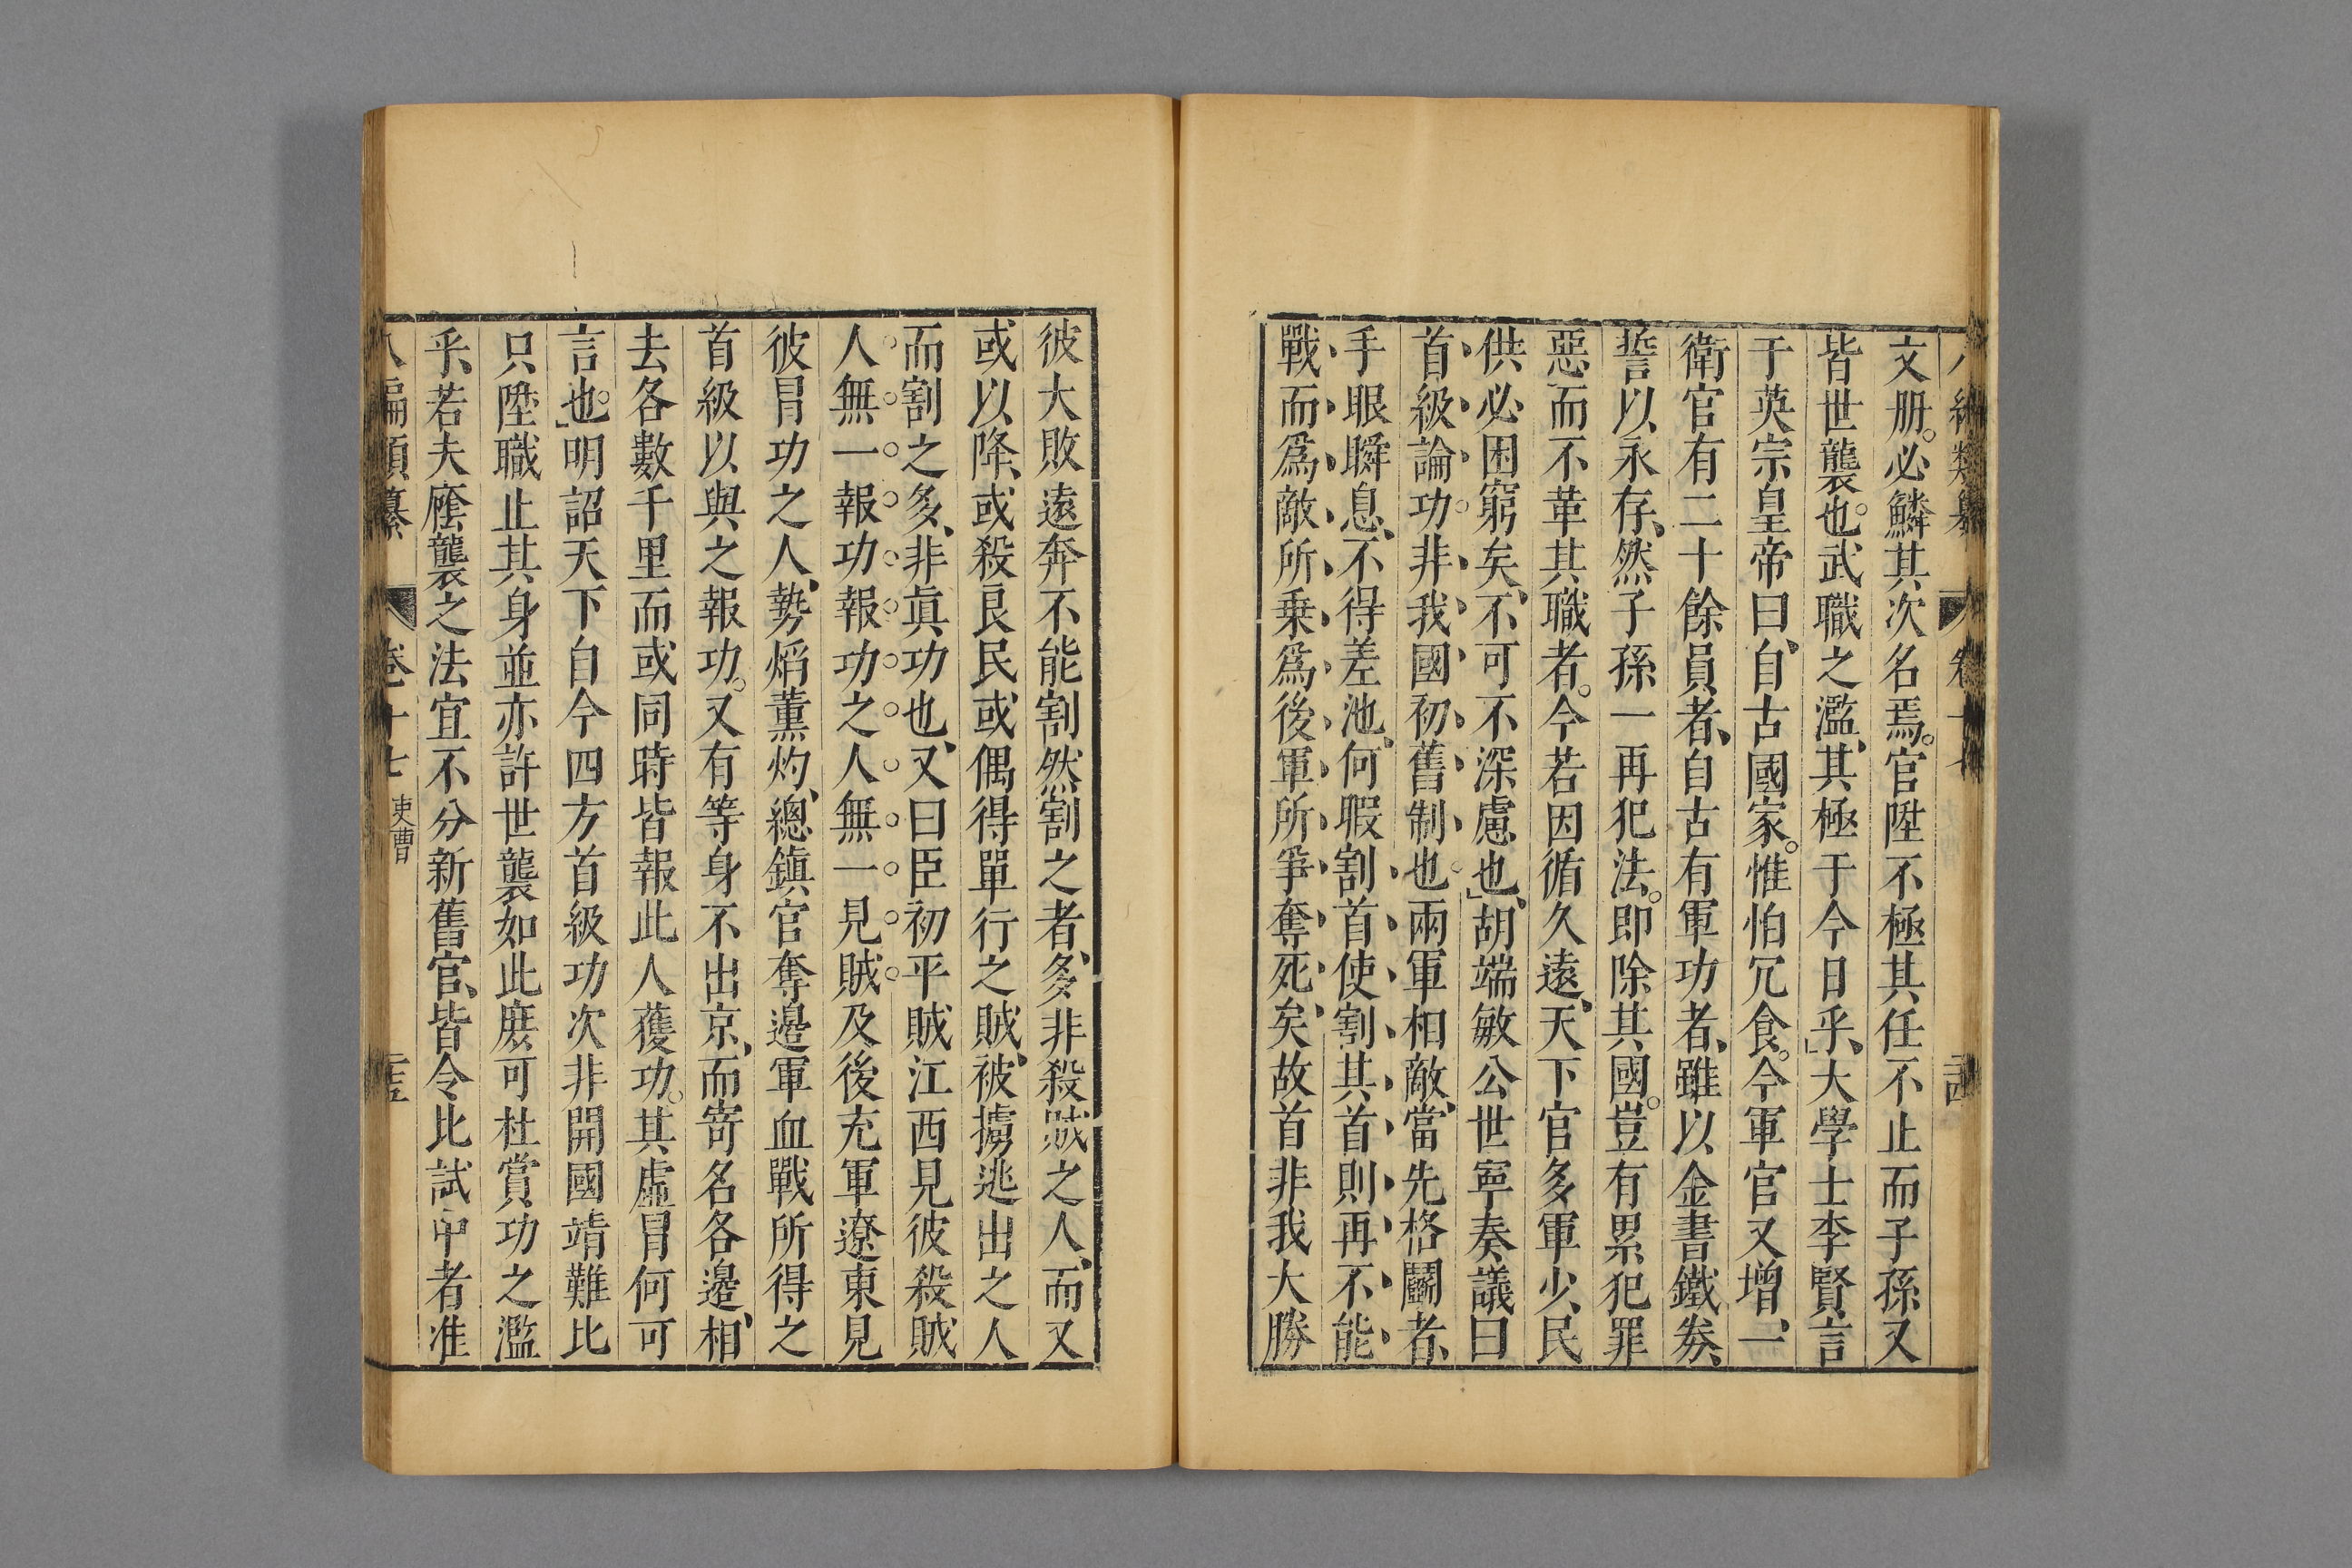 文册必鱗其次名焉官陞不極其任不止而子孫又
皆世襲也武職之濫其極于今日乎大學士李賢言
于英宗皇帝曰自古國家惟怕冗食今軍官又增一
衛官有二十餘員者自古有軍功者雖以金書鐵券
誓以永存然子孫一再犯法即除其國豈有累犯罪
惡而不革其職者今若因循久遠天下官多軍少民
供必困窮矣不可不深慮也胡端敏公世寧奏議曰
首級論功非我國初舊制也兩軍相敵當先格鬭者
手眼瞬息不得差池何暇割首使割其首則再不能
戰而爲敵所乗爲後軍所爭奪死矣故首非我大勝
彼大敗遠奔不能割然割之者多非殺賊之人而又
或以降或殺良民或偶得單行之賊被擄逃出之人
而割之多非眞功也又曰臣初平賊江西見彼殺賊
人無一報功報功之人無一見賊及後充軍遼東見
彼冒功之人勢熖薰灼總鎮官奪邊軍血戰所得之
首級以與之報功又有等身不出京而寄名各邊相
去各數千里而或同時皆報此人獲功其虛冒何可
言也明詔天下自今四方首級功次非開國靖難比
只陞職止其身並亦許世襲如此庶可杜賞功之濫
乎若夫廕襲之法宜不分新舊官皆令比試中者准
八編類纂 卷十七 吏曹